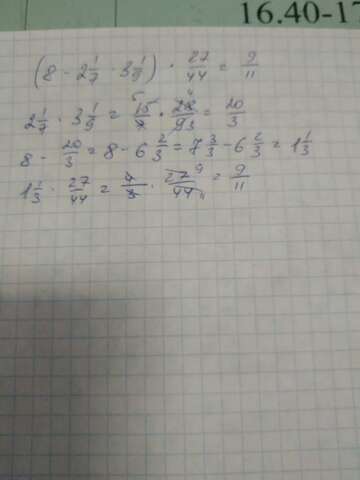 16.40-17
(8 - 2 1/7 · 3 1/9) · 27/44 = 9/11
2 1/7 · 3 1/9 = 15/7 · 28/93 = 20/3
8 - 20/3 = 8 - 6 2/3 = 7 3/3 - 6 2/3 = 1 1/3
1 1/3 · 27/44 = 4/3 · 27/44 = 9/11